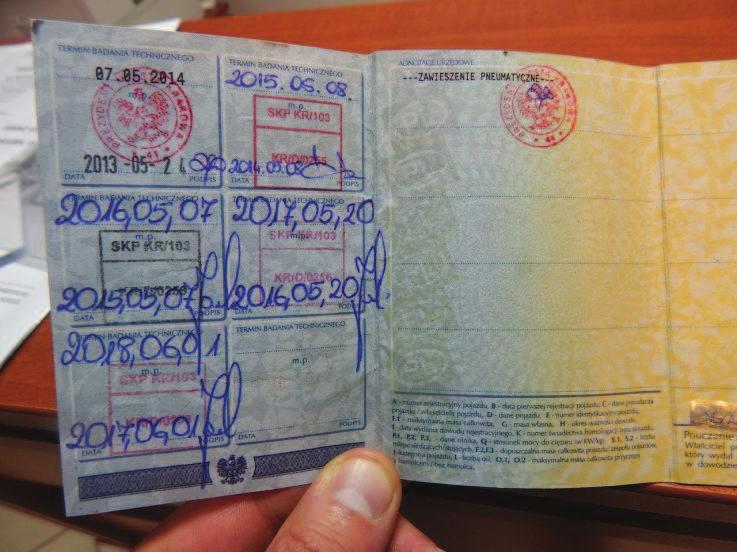 TERMIN BADANIA TECHNICZNEGO
07.05.2014
m.p.
2013 -05- 2 4
DATA PODPIS
TERMIN BADANIA TECHNICZNEGO
2015.05.08.
m.p.
SKP KR/103
KR/D/0255
2014.05.08
DATA PODPIS
2016,05,07
m.p.
SKP KR/103
2015,05,07
DATA
TERMIN BADANIA TECHNICZNEGO
2017.05,20
m.p.
SKP KR/103
KR/D/0256
2016,05,20
DATA
TERMIN BADANIA TECHNICZNEGO
2018,06,01
m.p.
SKP KR/103
2017,06,01
DATA
TERMIN BADANIA TECHNICZNEGO
m.p.
DATA PODPIS
ADNOTACJE URZĘDOWE
---ZAWIESZENIE PNEUMATYCZNE---
A - numer rejestracyjny pojazdu, B - data pierwszej rejestracji pojazdu, C - dane posiadacza
pojazdu / właściciela pojazdu, D - dane pojazdu, E - numer identyfikacyjny pojazdu,
F.1 - maksymalna masa całkowita, G - masa własna, H - okres ważności dowodu,
I - data wydania dowodu rejestracyjnego, K - numer świadectwa homologacji typu pojazdu,
P.1, P.2, P.3, - dane silnika, Q - stosunek mocy do ciężaru w KW/kg) S.1, S.2 - liczba
miejsc siedzących/stojących, F.2,F.3 - dopuszczalna masa całkowita pojazdu/zespołu pojazdów,
J-kategoria pojazdu, L - liczba osi, O.1, O.2 - maksymalna masa całkowita przyczepy
z hamulcem / bez hamulca.
Pouczenie
Właściciel po
który wydał
w dowodzie